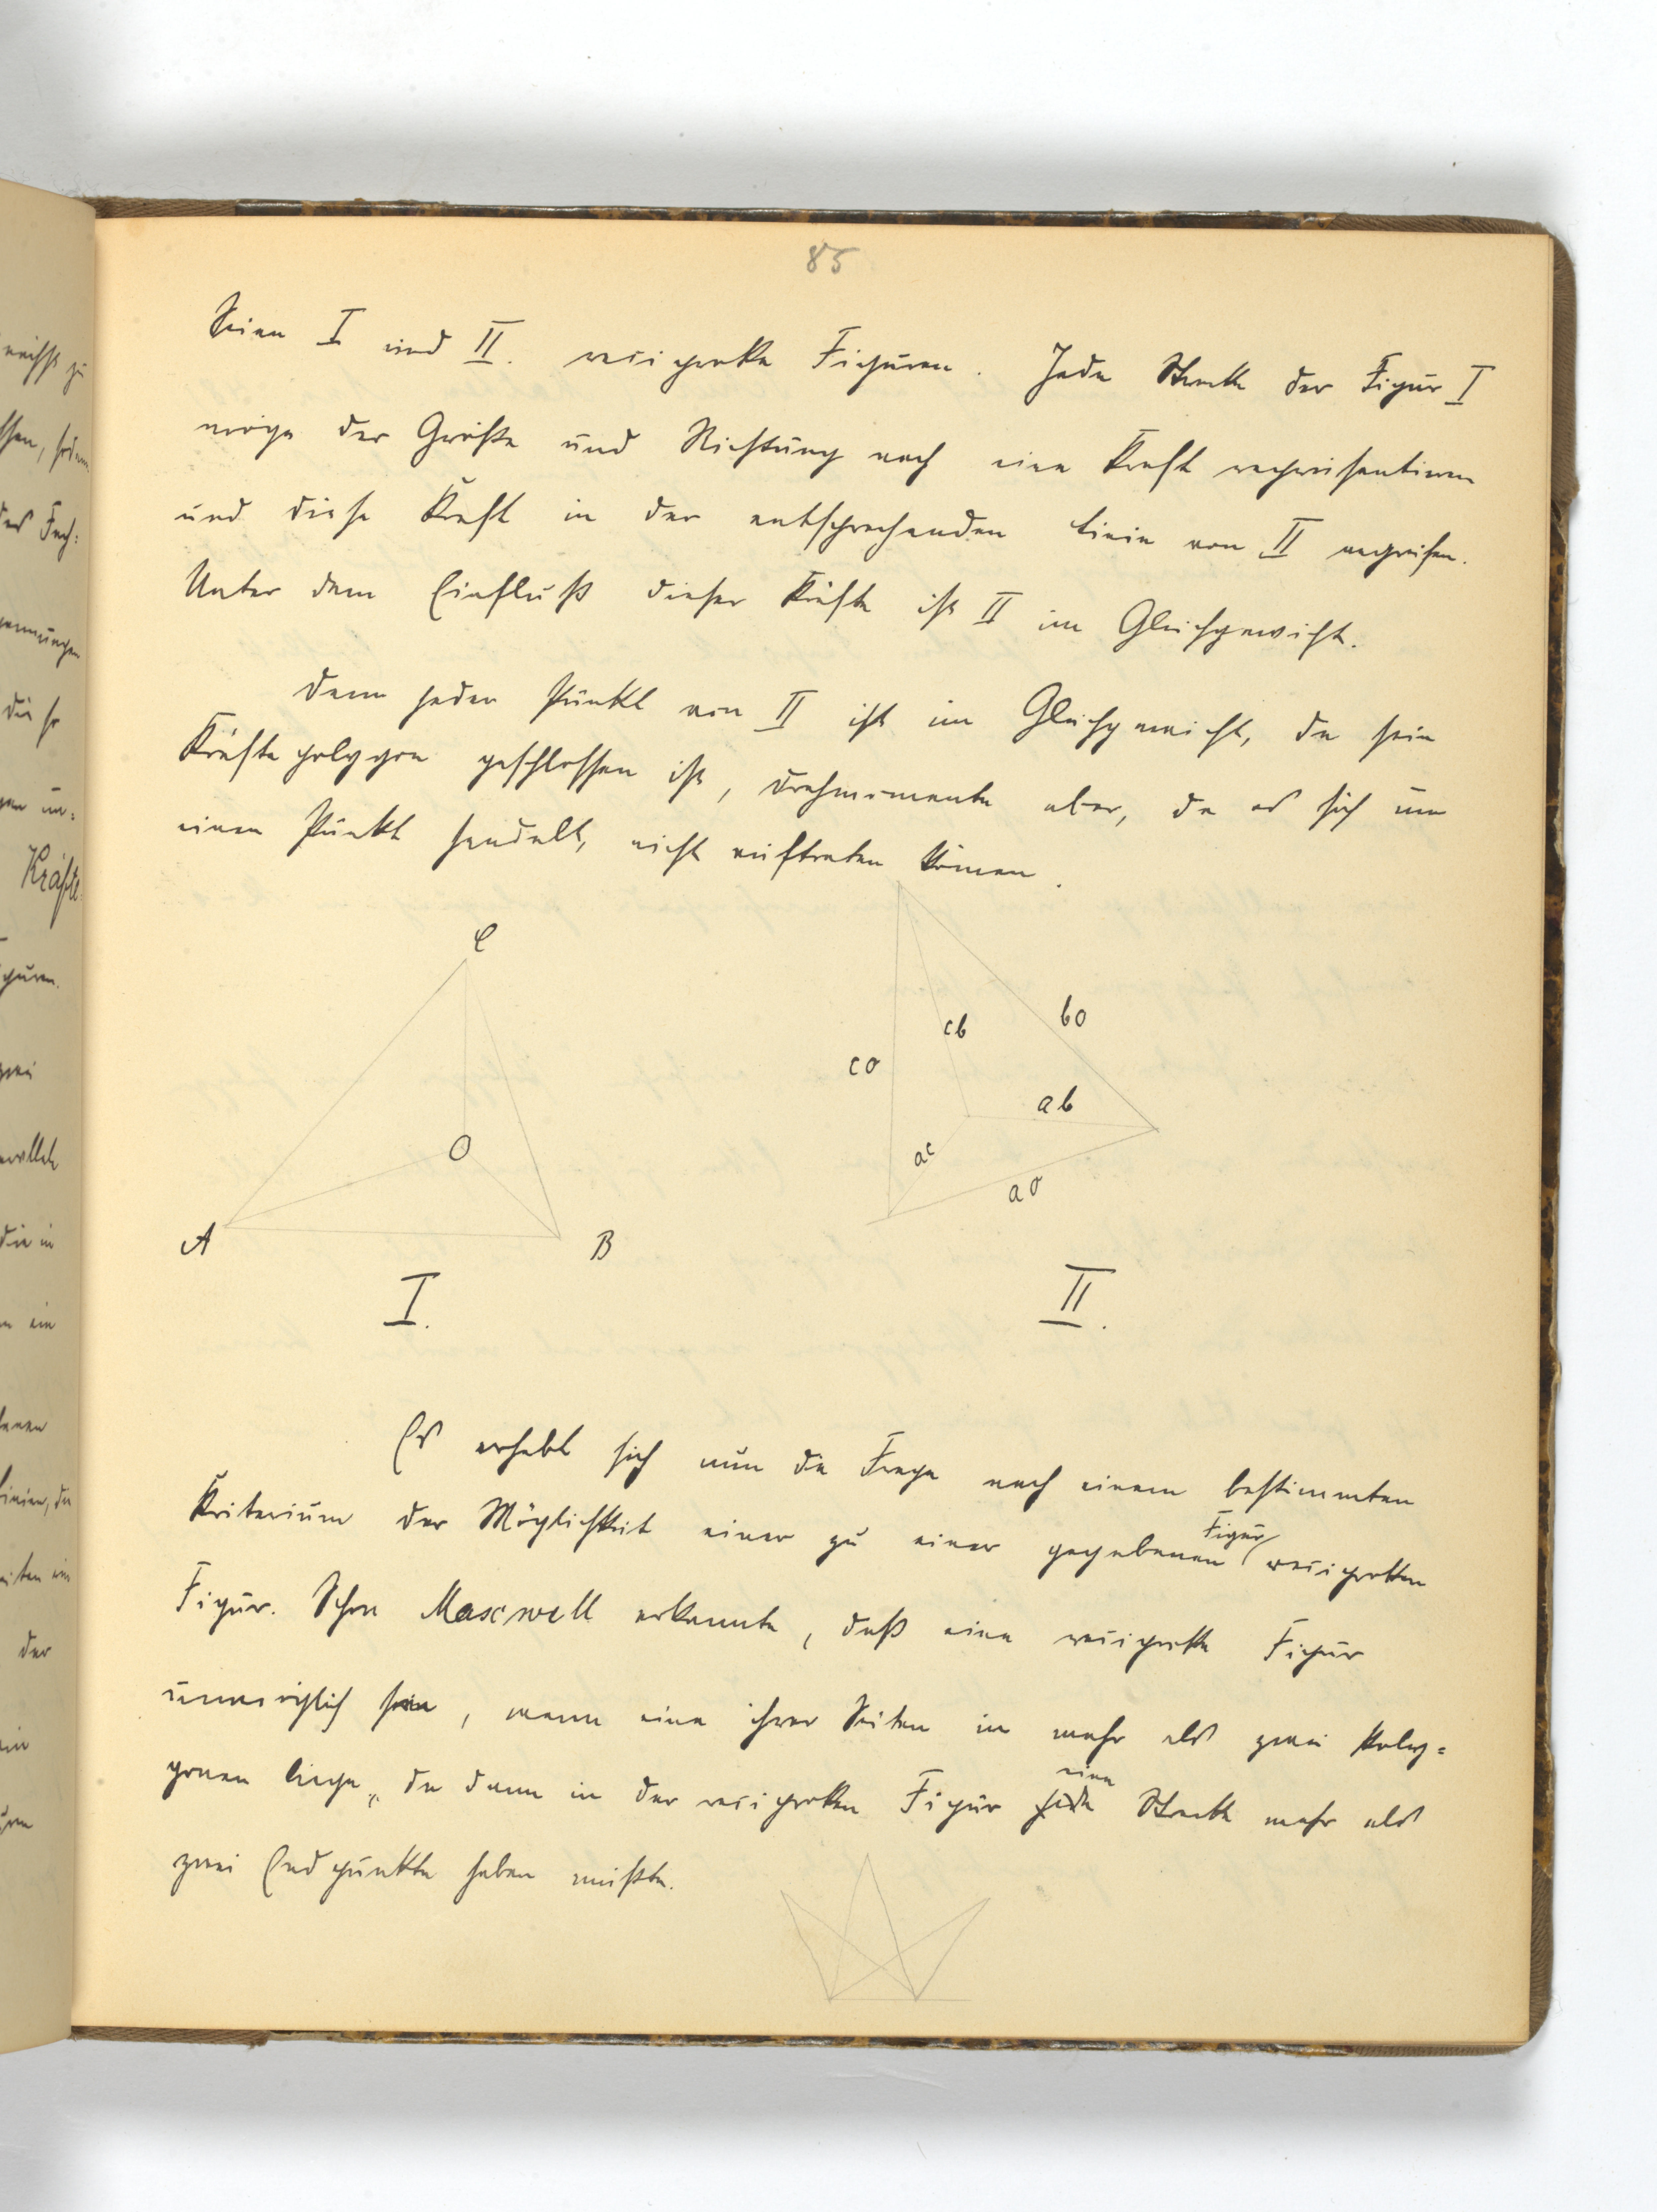 85
Seien I und II. reciproke Figuren. Jede Strecke der Figur I
möge der Größe und Richtung nach eine Kraft repräsentieren
und diese Kraft in der entsprechenden Linie von II angreifen.
Unter dem Einfluß dieser Kräfte ist II im Gleichgewicht.
Denn jeder Punkt von II ist im Gleichgewicht, da sein
Kräftepolygon geschlossen ist, Drehmomente aber, da es sich um
einen Punkt handelt, nicht auftreten können.
C
O
A
B
I.
bo
cb
co
ab
ac
ao
II.
Es erhebt sich nun die Frage nach einem bestimmten
Kriterium der Möglichkeit einer zu einer gegebenen Figur reciproken
Figur. Schon Maxwell erkannte, daß eine reciproke Figur
unmöglich sei, wenn eine ihrer Seiten in mehr als zwei Poly=
gonen liege, da dann in der reciproken Figur eine Strecke mehr als
zwei Endpunkte haben müßte.